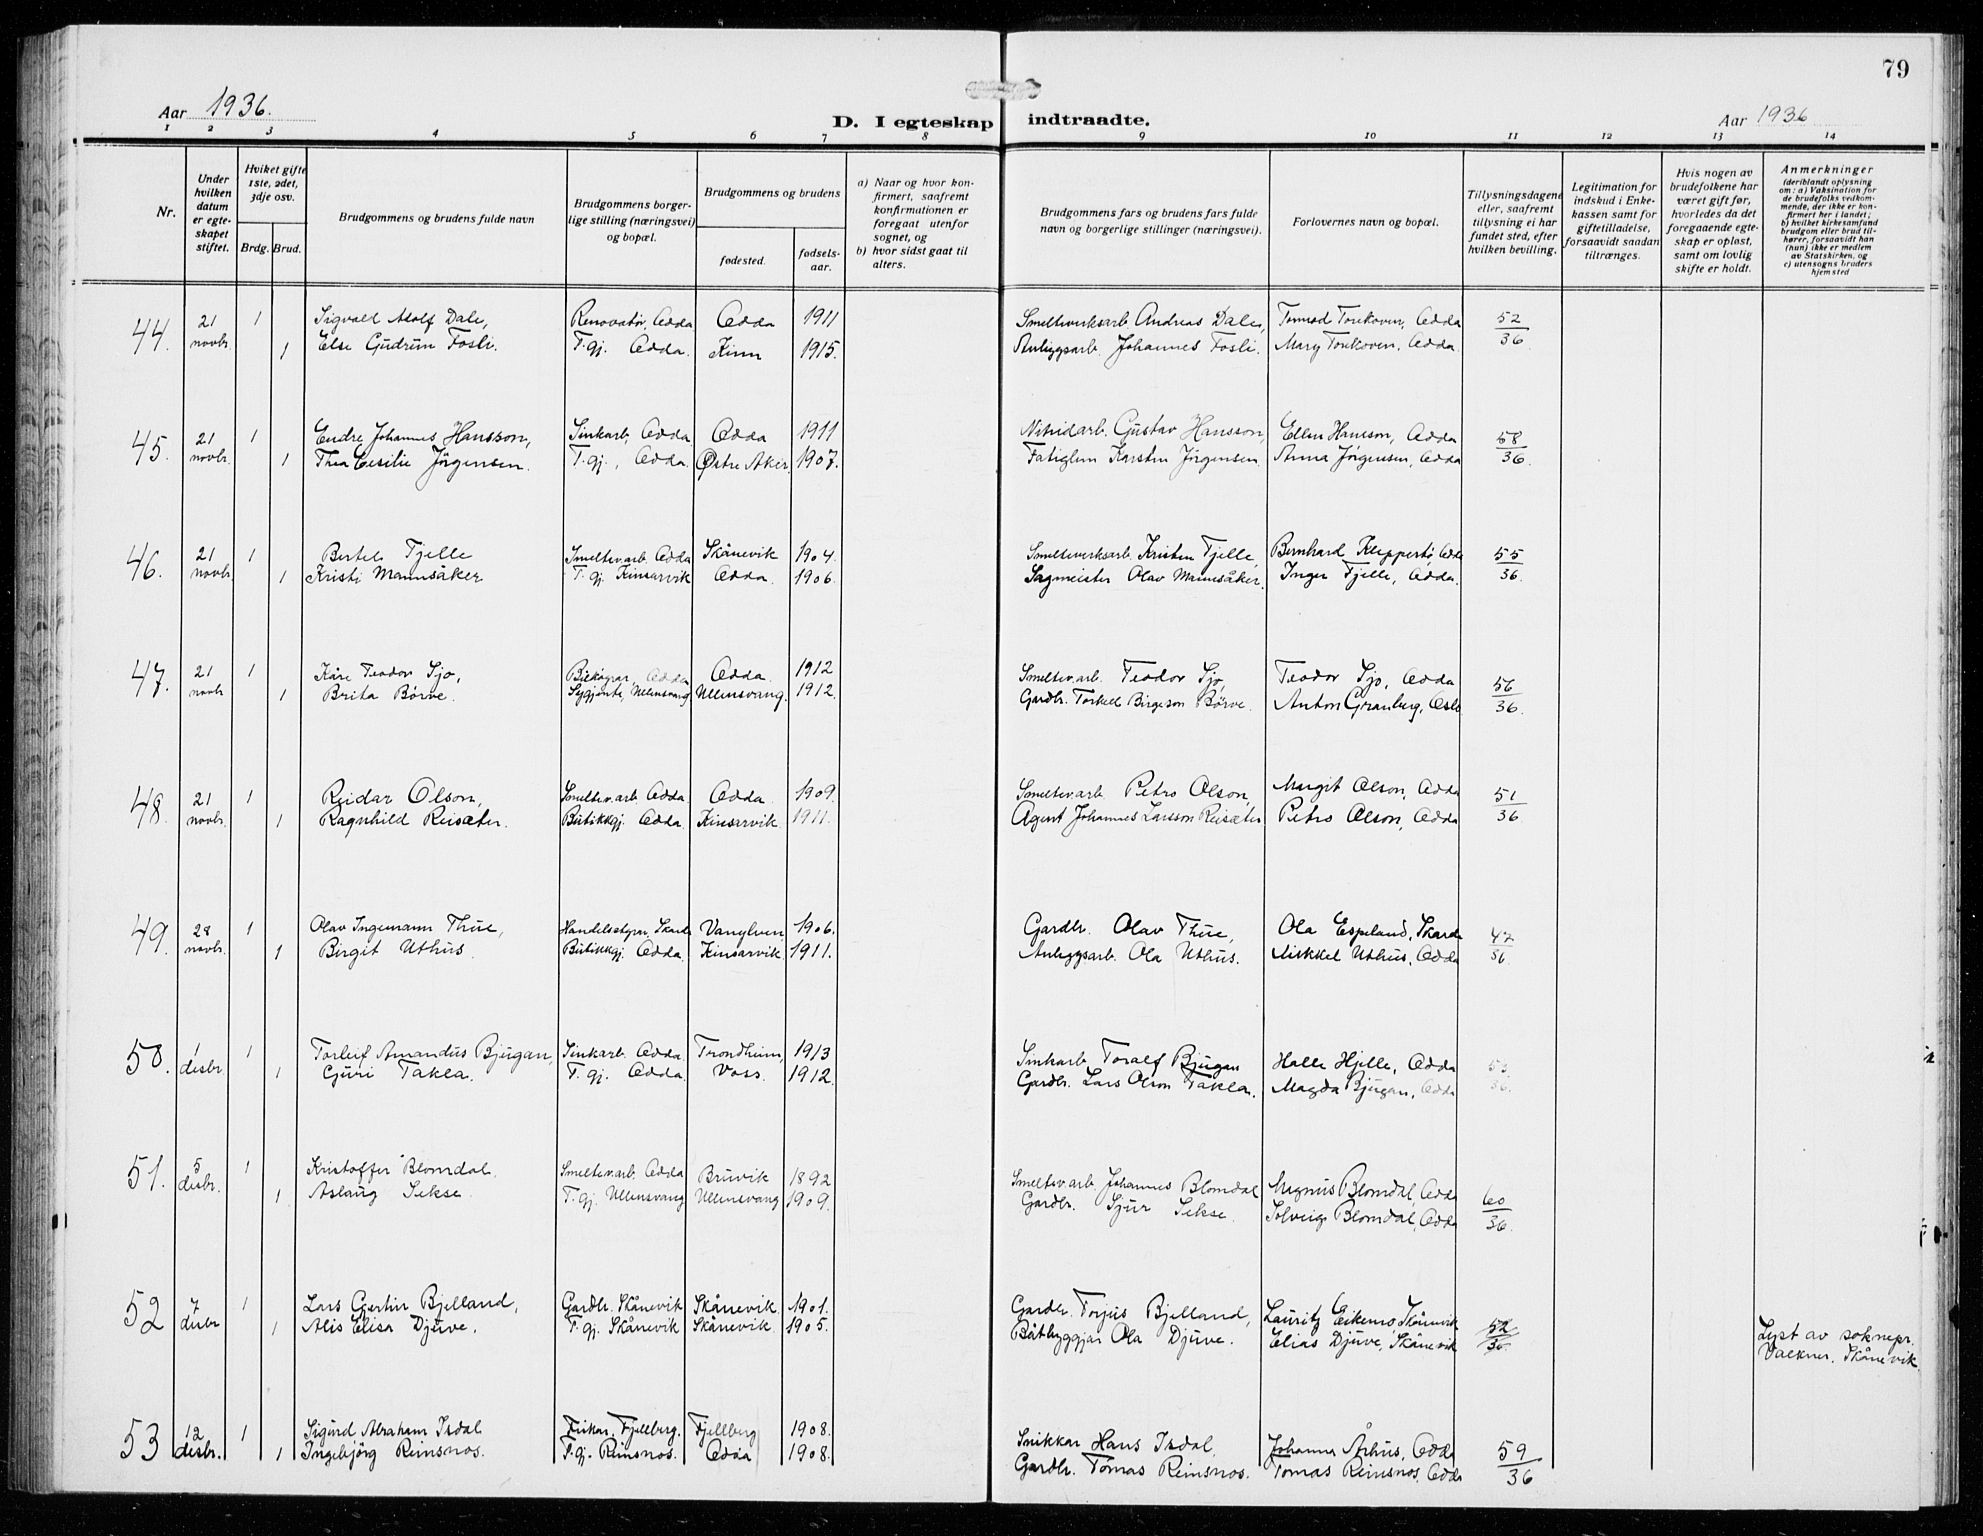 79
Aar 1936.
D. I egteskap indtraadte.
Aar 1936
1 2 3 4 5 6 7 8 9 10 11 12 13 14
Nr.
Under hvilken datum er egteskapet stiftet.
Hvilket gifte 1ste, 2det, 3dje osv.
Brdg. Brud.
Brudgommens og brudens fulde navn
Brudgommens borgerlige stilling (næringsvei) og bopæl.
Brudgommens og brudens
fødested.
fødselsaar.
a) Naar og hvor konfirmert, saafremt konfirmationen er foregaat utenfor sognet, og
b) hvor sidst gaat til alters.
Brudgommens fars og brudens fars fulde navn og borgerlige stillinger (næringsvei).
Forlovernes navn og bopæl.
Tillysningsdagene eller, saafremt tillysning ei har fundet sted, efter hvilken bevilling.
Legitimation for indskud i Enkekassen samt for giftetilladelse, forsaavidt saadan tiltrænges.
Hvis nogen av brudefolkene har været gift før, hvorledes da det foregaaende egteskap er opløst, samt om lovlig skifte er holdt.
Anmerkninger (deriblandt oplysning om: a) Vaksination for de brudefolks vedkommende, der ikke er konfirmert her i landet; b) hvilket kirkesamfund brudgom eller brud tilhører, forsaavidt han (hun) ikke er medlem av Statskirken, og c) utensogns bruders hjemsted
44. 21 novbr. 1 Sigvald Adolf Dale, Renovatør, Odda Odda 1911 Smelteverksarb. Andreas Dale, Odda 52/36
1 Else Gudrun Fosli. T.gj. Odda. Kinn 1915. Anleggsarb. Johannes Fosli. Mary Odda.
45. 21 novbr. 1 Endre Johannes Hansson, Sinkarb. Odda Odda 1911 Nitridarb. Gustav Hansson, Ellen Hansson, Odda 58/36.
1 Thea Cesilie Jörgensen. T.gj., Odda. Østre Aker 1907. Karsten Jörgensen. Anna Jörgensen, Odda
46. 21 novbr. 1 Bertel Fjelle Smeltev.arb. Odda Skånevik 1904. Smelteverksarb. Kristen Fjelle, Bernhard Kleppestø, Odda 55/36.
1 Kristi Mannsåker T.gj. Kinsarvik Odda. 1906. Sagmeister Olav Mannsåker. Inger Fjelle, Odda.
47. 21 novbr 1 Kåre Teodor Sjo, Odda Odda. 1912 Smeltev.arb. Teodor Sjo, Teodor Sjo, Odda 56/36.
1 Brita Börve. Sygjente, Ullensvang Ullensvang. 1912. Gardbr. Torkell Birgeson Börve. Anton Granberg, Oslo
48. 21 novbr. 1 Reidar Olson, Smeltev.arb. Odda. Odda. 1909. Smeltev.arb. Petro Olson, Margit Olson, Odda 51/36.
1 Ragnhild Reisæter. Butikkgj. Odda. Kinsarvik. 1911. Agent Johannes Larsson Reisæter Petro Olson, Odda
49. 28 novbr. 1 Olav Ingemann Thue, Handelsstyrar, Skarde Vanylven 1906. Gardbr. Olav Thue, Ola Espeland, Skarde 47/36.
1 Birgit Uthus. Butikkgj. Odda. Kinsarvik 1911. Anleggsarb. Ola Uthus. Mikkel Uthus, Odda
50. 1 desbr 1 Torleif Amandus Bjugan, Sinkarb. Odda. Trondheim, 1913 Sinkarb. Toralf Bjugan Halle Hjelle, Odda 53/36.
1 Guri Takla. T.gj. Odda. Voss. 1912. Gardbr. Lars Olson Takla. Magda Bjugan, Odda
51. 5 desbr. 1 Kristoffer Blomdal. Smeltev.arb. Odda Bruvik 1892 Smeltev.arb. Johannes Blomdal Magnus Blomdal, Odda 60/36.
1 Aslaug Sekse. T.gj. Ullensvang Ullensvang 1909. Gardbr. Sjur Sekse. Solveig Blomdal, Odda
52 7 desbr 1 Lars Gertin Bjelland, Gardbr. Skånevik Skånevik. 1901. Gardbr. Torjus Bjelland, Lauritz Eikemo, Skånevik 52/36.
1 Alis Elisa Djuve. T.gj. Skånevik Skånevik. 1905. Båtbyggjar Ola Djuve. Elias Djuve, Skånevik
Lyst av soknepr. Valkner. Skånevik.
53 12 desbr. 1 Sigurd Abraham Isdal Fiskar, Fjellberg. Fjellberg 1908. Snikkar Hans Isdal. Johanna Århus, Odda 59/36
1 Ingebjörg Reinsnos. T.gj. Reinsnos. Odda 1908. Gardbr. Tomas Reinsnos. Tomas Reinsnos, Odda